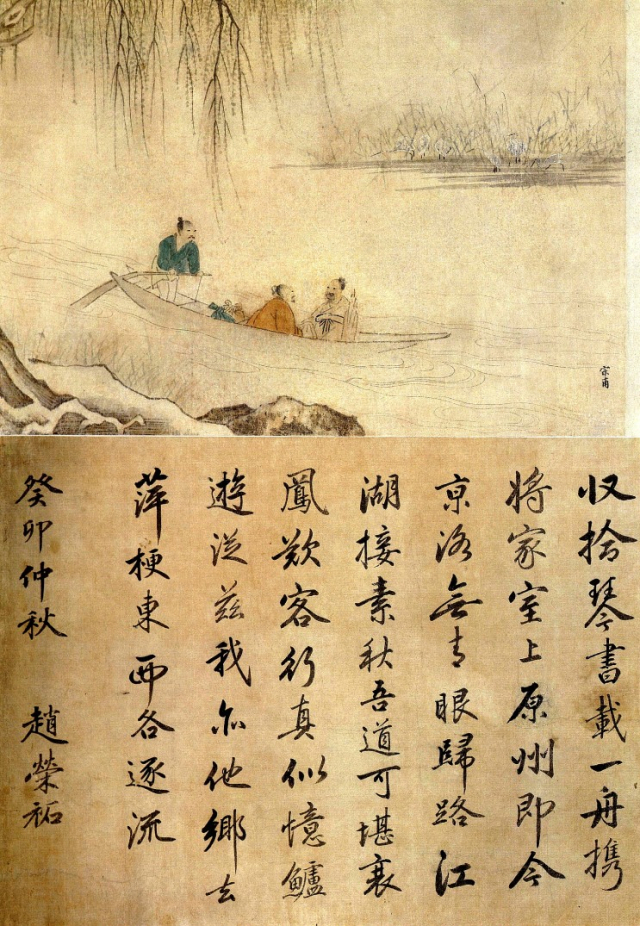 宗甫
収拾琴書載一舟携
将家室上原州即今
京洛無青眼歸路江
湖接素秋吾道可堪衰
鳳歎客行真似憶鱸
遊從兹我亦他鄉去
萍梗東西各逐流
癸卯仲秋 趙榮祏